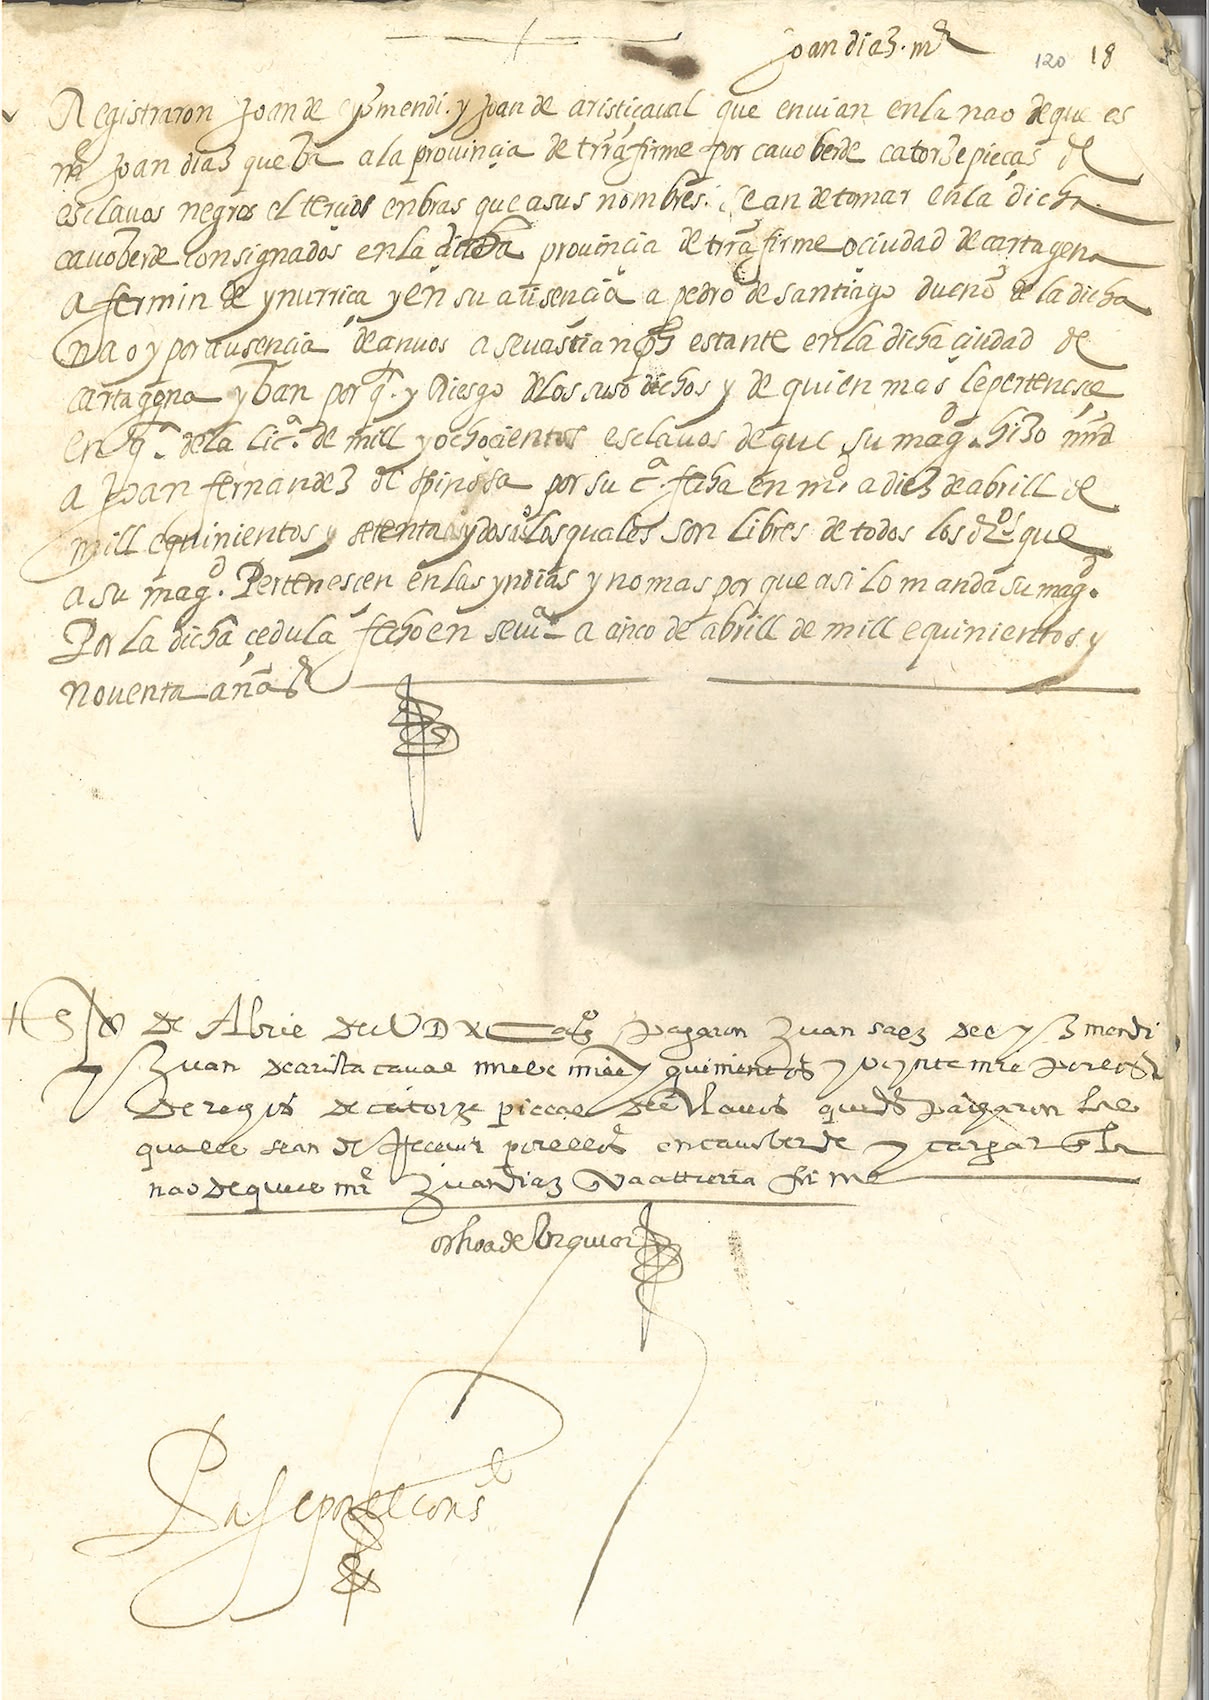 Joan diaz. mre
120 18
Registraron Joan de eyzmendi. y Joan de aristiçaval que envian en la nao de que es
mre Joan diaz que ba a la provinçia de trrafirme por cavo berde catorze pieças de
esclavos negros el tercio enbras que a sus nombres. se an de tomar en la dicha
cavoberde consignados en la dicha provincia de trrafirme o ciudad de cartagena
a fermin de ynurriça y en su ausençia a pedro de santiago dueño de la dicha
nao y por ausencia de anvos a sevastian estante en la dicha çiudad de
cartagena y ban por qta. y Riesgo de los suso dichos y de quien mas le pertenesçe
en qta. de la lica. de mill y ochocientos esclavos de que su magd. hizo mrd
a Joan fernandez de spinosa por su ca. fecha en md. a diez de abrill de
mill e quinientos y setenta y dos as los quales son libres de todos los dros que
a su magd. Pertenesçen en las yndias y no mas por que asi lo manda su magd.
Por la dicha çedula fecho en seuia a cinco de abrill de mill e quinientos y
noventa años
de Abril de UDXC aos pagaron Juan saez de eyzmendi
y Juan de aristacaval nueve mill y quinientos y veynte mrs por los
derechos de catorze pieças de esclavos que pagaron los
quales se an de Recevir por ellos en cavoberde y cargar en la
nao de que es mre Juan diaz va a tierra firme
ochoa de Urquiça
Pase por el cons